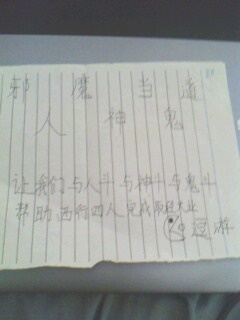 邪魔当道
人神鬼
让我们与人斗与神斗与鬼斗
帮助西行四人完成取经大业
逗游